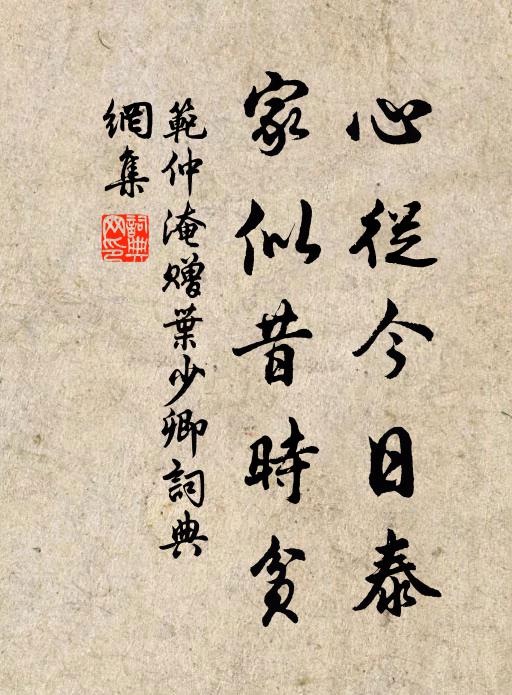 心從今日泰
家似昔時貧
範仲淹贈葉少卿詞典
網集
詞典
网印